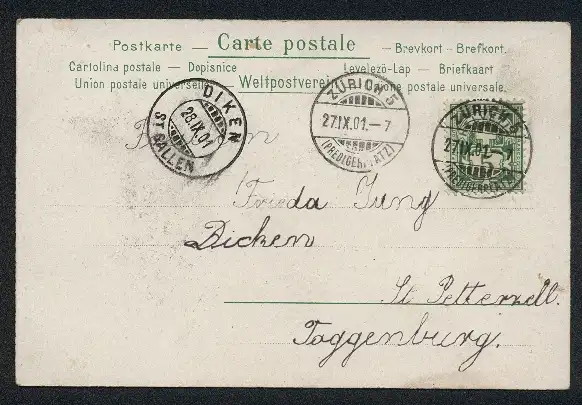 Postkarte — Carte postale — Brevkort - Brefkort
Cartolina postale — Dopisnice Levelezö-Lap — Briefkaart
Union postale universelle Weltpostverein postale universale.
DIKEN
28.IX.01
ST GALLEN
ZÜRICH 5
27.IX.01.–7
(PREDIGERPLATZ)
ZÜRICH 5
27.IX.01.–7
(PREDIGERPLATZ)
5
Frieda Jung
Dicken
St Petterzell.
Toggenburg.